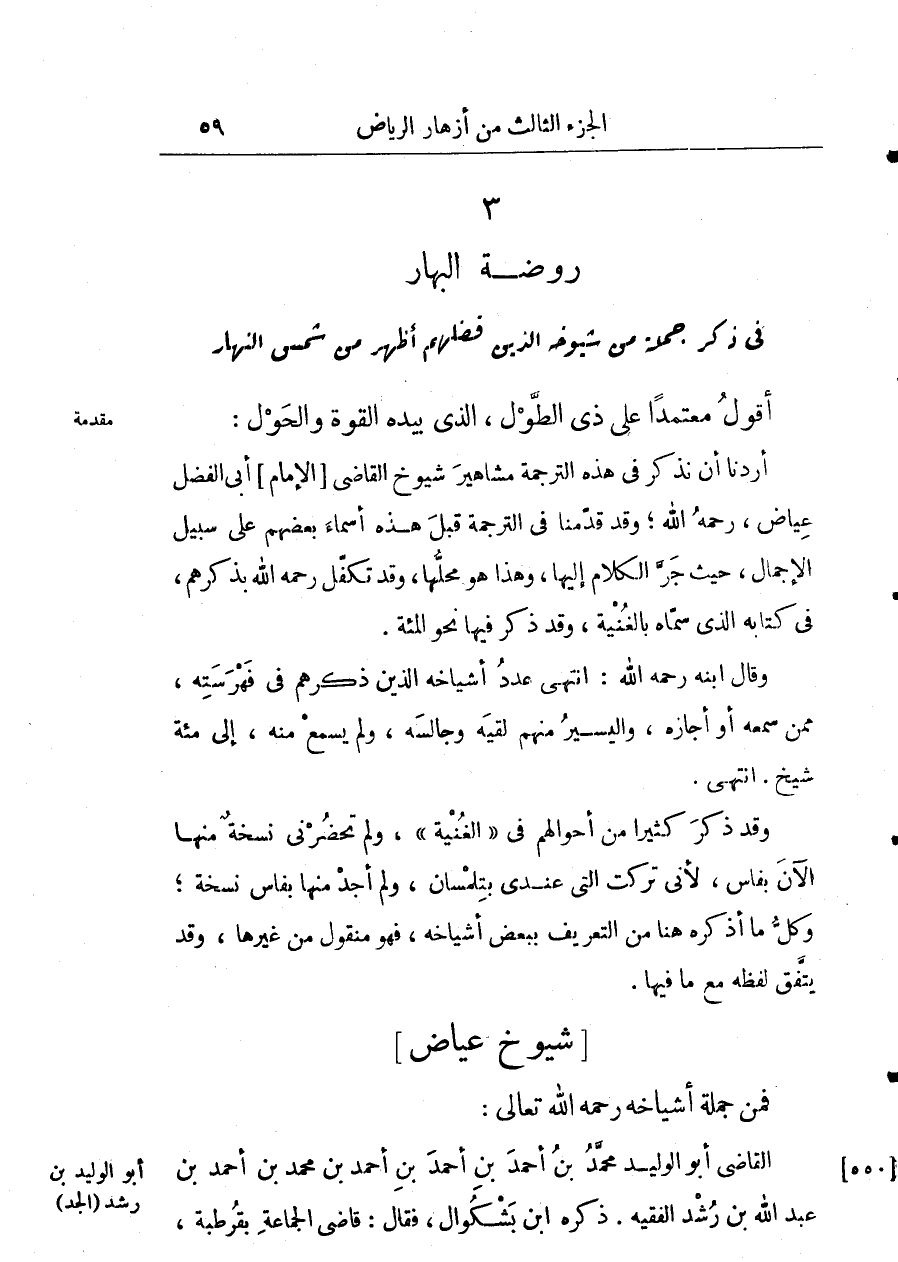 الجزء الثالث من أزهار الرياض ٥٩
٣
روضة البهار
فى ذكر جملة من شيوخه الذين فضلهم أظهر من شمس النهار
مقدمة
أقولُ معتمدًا على ذى الطَّوْل ، الذى بيده القوة والحَوْل :
أردنا أن نذكر فى هذه الترجمة مشاهيرَ شيوخ القاضى [الإمام] أبى الفضل
عِياض ، رحمهُ الله ؛ وقد قدّمنا فى الترجمة قبلَ هذه أسماءَ بعضهم على سبيل
الإجمال ، حيث جَرَّ الكلام إليها ، وهذا هو محلُّها ، وقد تكفّل رحمه الله بذكرهم ،
فى كتابه الذى سمّاه بالغُنْية ، وقد ذكر فيها نحو المئة .
وقال ابنه رحمه الله : انتهى عددُ أشياخه الذين ذكرهم فى فَهْرَسَتِه ،
ممن سمعه أو أجازه ، واليسيرُ منهم لقيَه وجالسَه ، ولم يسمعْ منه ، إلى مئة
شيخ . انتهى .
وقد ذكرَ كثيرا من أحوالهم فى « الغُنْية » ، ولم تحضُرْنى نسخةٌ منها
الآنَ بفاس ، لأنى تركت التى عندى بِتِلِمْسان ، ولم أجدْ منها بفاس نسخة ؛
وكلُّ ما أذكره هنا من التعريف ببعض أشياخه ، فهو منقول من غيرها ، وقد
يتَّفق لفظه مع ما فيها .
[شيوخ عياض]
فمن جملة أشياخه رحمه الله تعالى :
[٥٥٠] القاضى أبو الوليد محمَّدُ بنُ أحمدَ بنِ أحمدَ بنِ أحمد بن محمد بن أحمد بن
عبد الله بن رُشْد الفقيه . ذكره ابن بَشْكُوال ، فقال : قاضى الجماعةِ بقُرطبة ،
أبو الوليد بن
رشد (الجد)